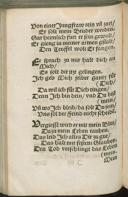 Von einer Jungfraw rein vñ zart/
Er solt mein Bruder werden
Gar heimlich fürt er sein gewalt/
Er gieng in meiner armen gstalt/
Den Teuffel wolt er fangen.
Er sprach zu mir halt dich an
Mich/
Es sol dir jtzt gelingen.
Ich geb Mich selber gantz für
Dich/
Da wil ich für Dich ringen/
Denn Ich bin dein/ vnd Du bist
mein/
Vñ wo Ich bleib/ da solt Du sein/
Vns sol der feind nicht scheiden.
Vergiessen wird er mir mein Blut/
Dazu mein Leben rauben.
Das leid Ich alles Dir zu gut/
Das halt mit festem Glauben/
Den Tod verschlingt das Leben
mein/
Mein